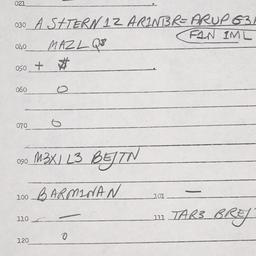 021
030 A S+TERN12 AR1NTBR= ARUP G3
F1N IML
040 MAZL Q8
050 + $
060 0
070 0
090 M3X1 L3 BEJTN
100 BARM1NAN 101 —
110 — 111 TAR3 BREJ
120 0